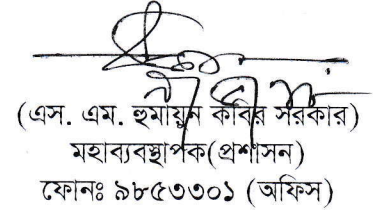 (এস. এম. হুমায়ুন কবির সরকার)
মহাব্যবস্থাপক(প্রশাসন)
ফোনঃ ৯৮৫৩৩০১ (অফিস)